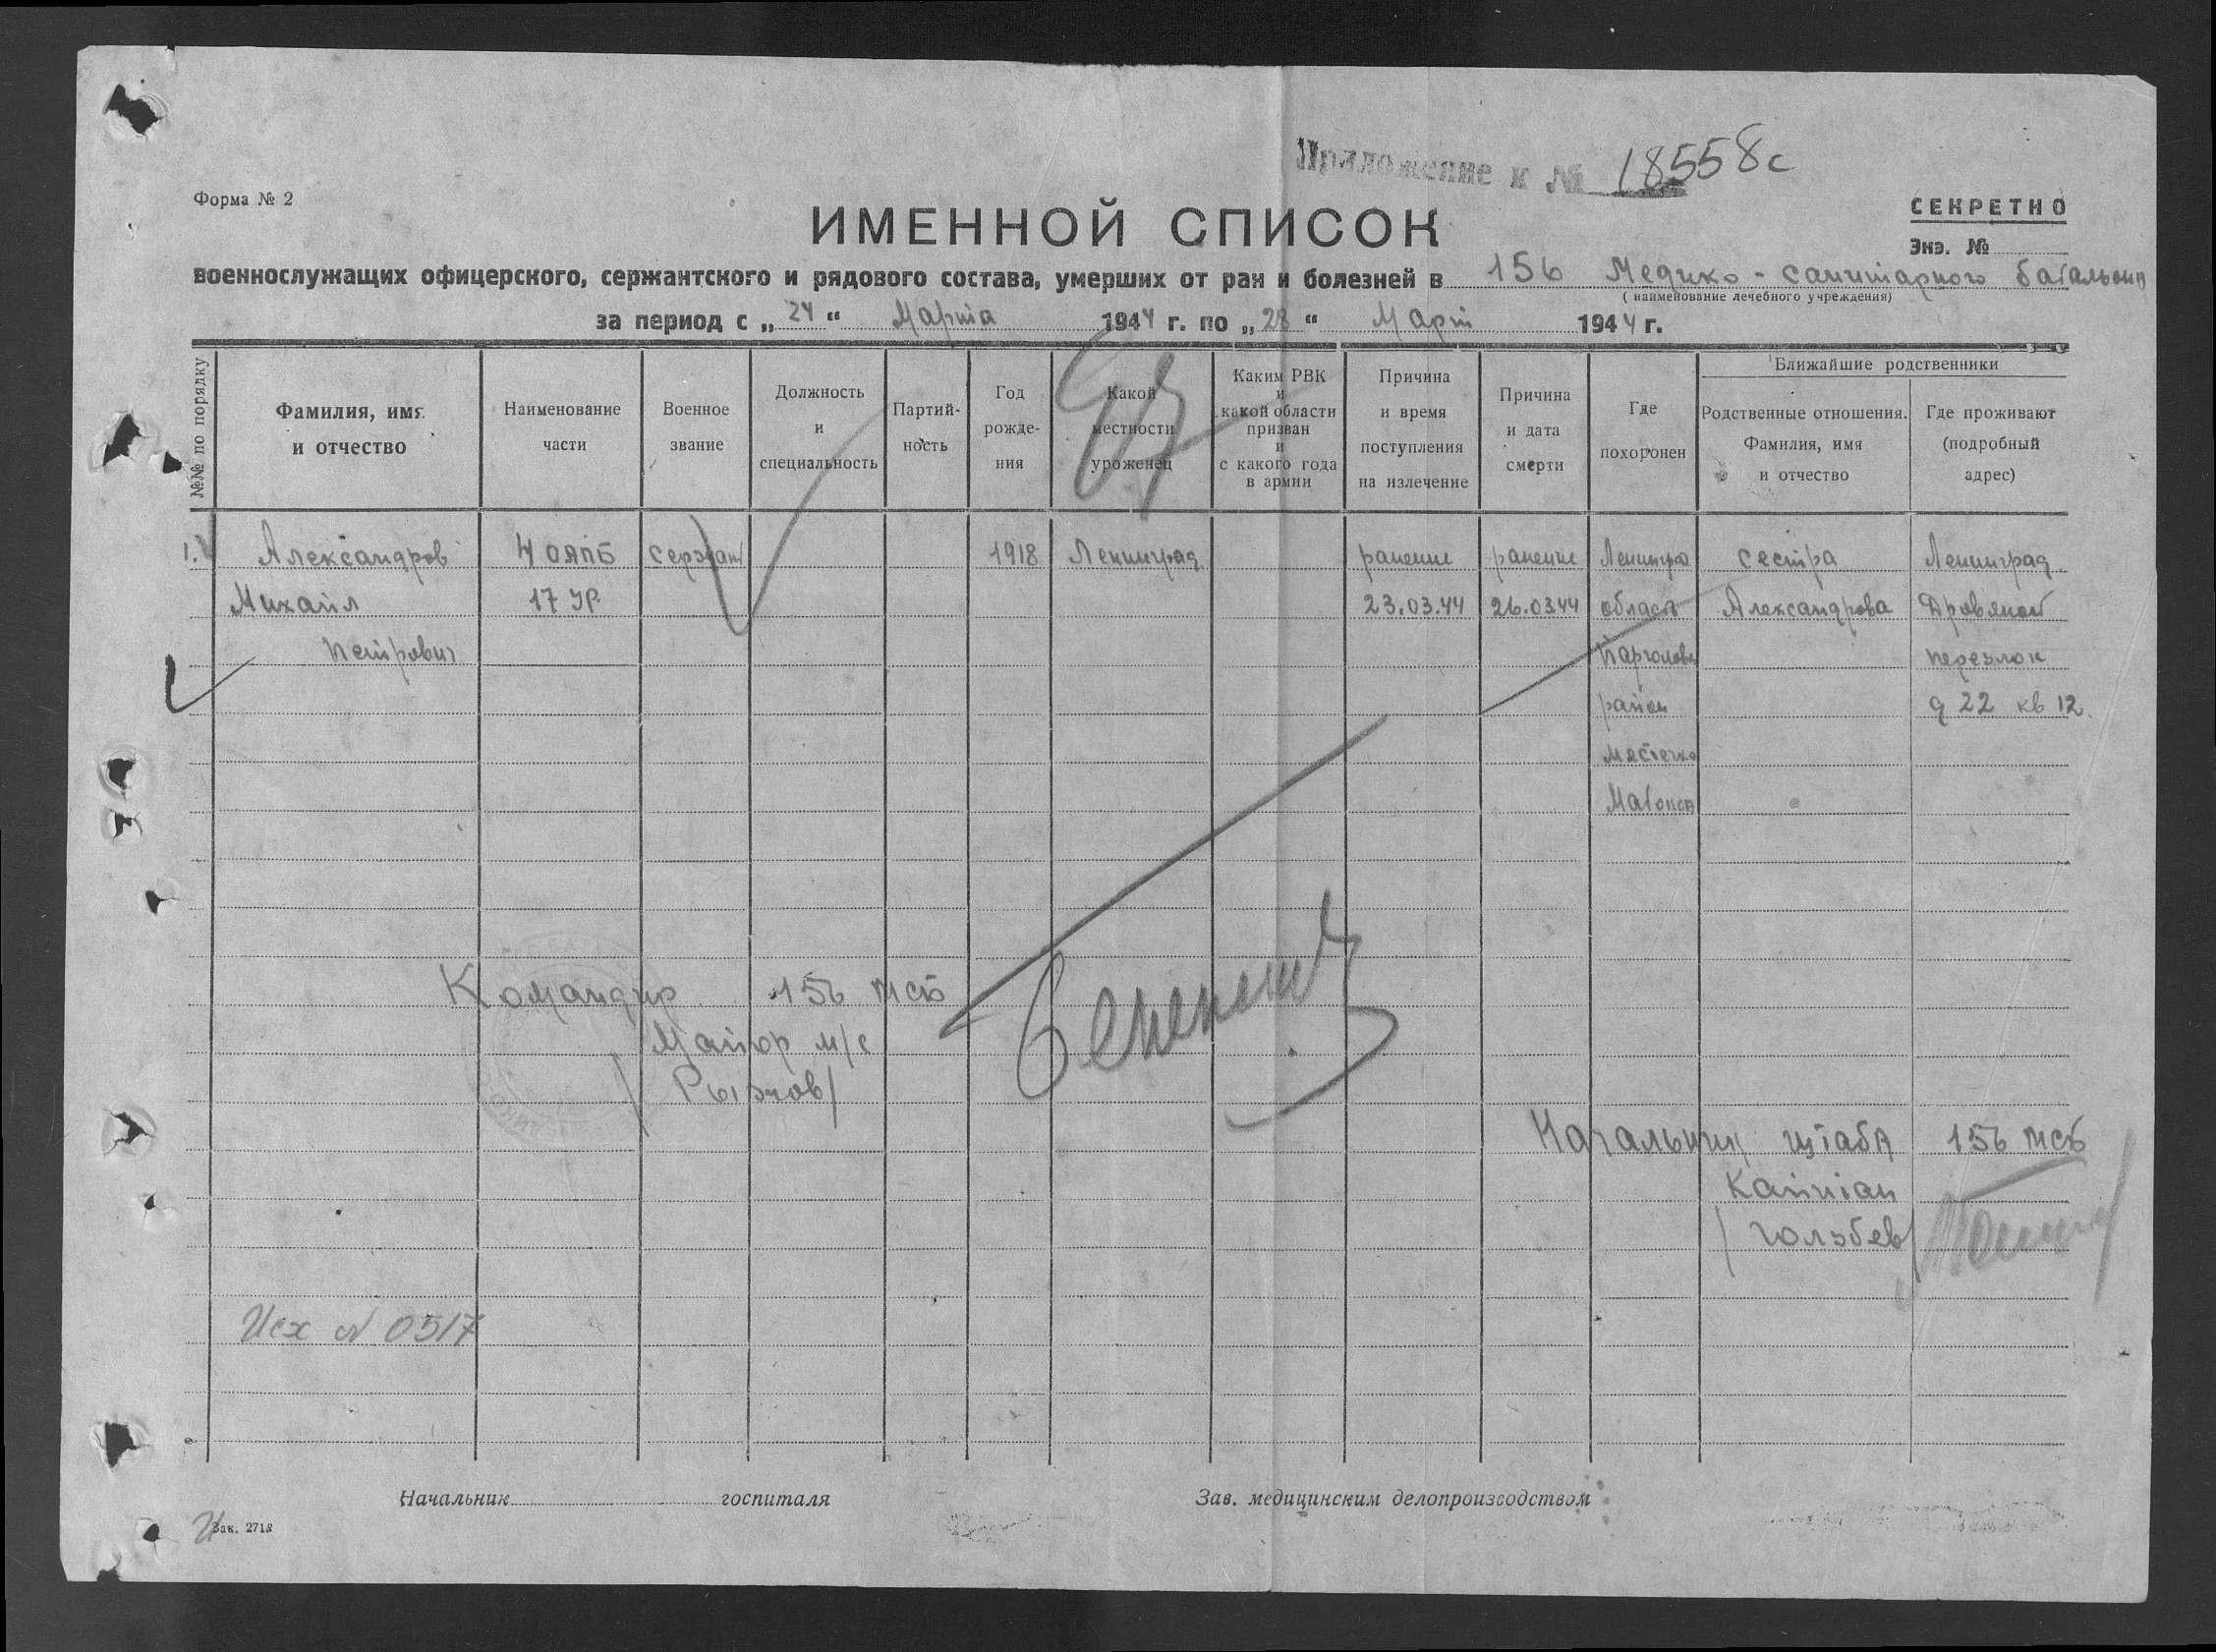 Приложение к № 18558с
Форма № 2
СЕКРЕТНО
ИМЕННОЙ СПИСОК
Экз. №
военнослужащих офицерского, сержантского и рядового состава, умерших от ран и болезней в 156 Медико-санитарного батальона
(наименование лечебного учреждения)
за период с „24“ Марта 1944 г. по „28“ Март 1944 г.
№№ по порядку
Фамилия, имя
и отчество
Наименование
части
Военное
звание
Должность
и
специальность
Партий-
ность
Год
рожде-
ния
Какой
местности
уроженец
Каким РВК
и
какой области
призван
и
с какого года
в армии
Причина
и время
поступления
на излечение
Причина
и дата
смерти
Где
похоронен
Ближайшие родственники
Родственные отношения.
Фамилия, имя
и отчество
Где проживают
(подробный
адрес)
1. Александров 4 ОЯПБ сержант 1918 Ленинград ранение ранение Ленингра сестра Ленинград
Михаил 17 УР. 23.03.44 26.03.44 област Александрова Дровяной
Петрович Парголова переулок
район д 22 кв 12.
местечко
Командир 156 мсб
Майор м/с
/Рыжов/
Начальник штаба 156 мсб
Капитан
/Голубев/
Исх № 0517
Начальник госпиталя
Зав. медицинским делопроизводством
Зак. 2718